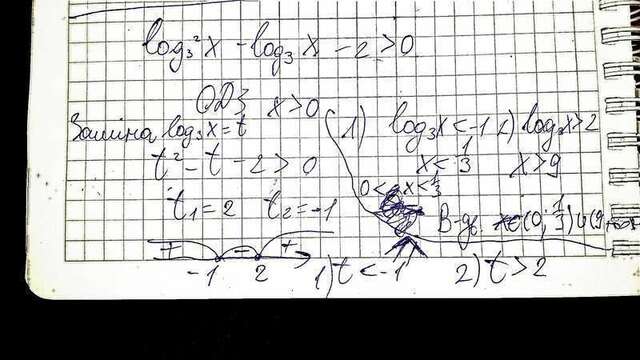 log₃²x - log₃x - 2 > 0
ОДЗ x > 0
Заміна log₃x = t
t² - t - 2 > 0
t₁ = 2 t₂ = -1
+ - +
-1 2
1) t < -1 2) t > 2
1) log₃x < -1 2) log₃x > 2
x < 1/3 x > 9
0 < x < 1/3
В-дь: x ∈ (0; 1/3) ∪ (9; +∞)